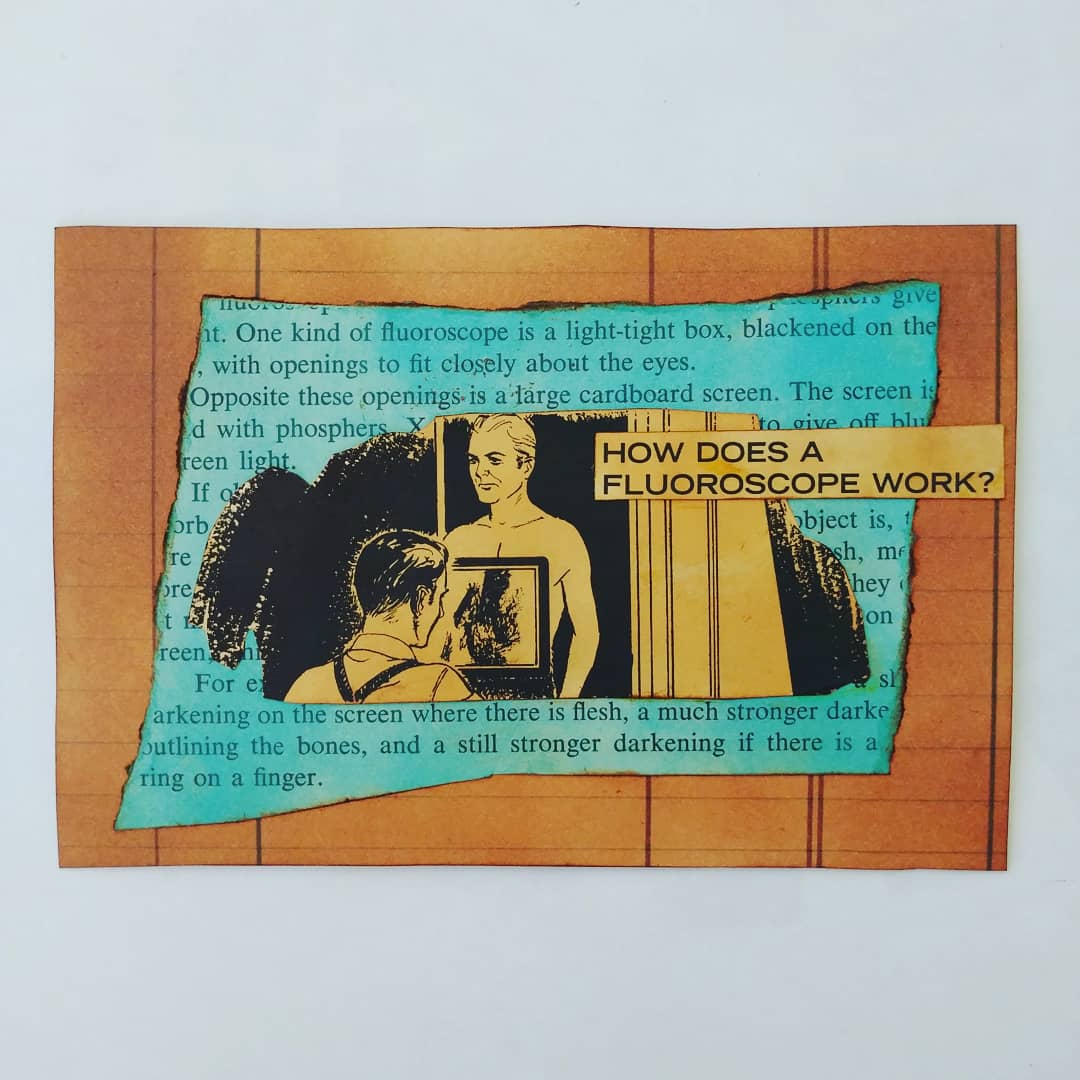 phosphers give
ht. One kind of fluoroscope is a light-tight box, blackened on the
, with openings to fit closely about the eyes.
Opposite these openings is a large cardboard screen. The screen is
d with phosphers. X to give off blu
reen light.
HOW DOES A
FLUOROSCOPE WORK?
If o
orb object is, t
re sh, me
ore hey
t on
reen,
For ex a sl
arkening on the screen where there is flesh, a much stronger darke
outlining the bones, and a still stronger darkening if there is a
ring on a finger.